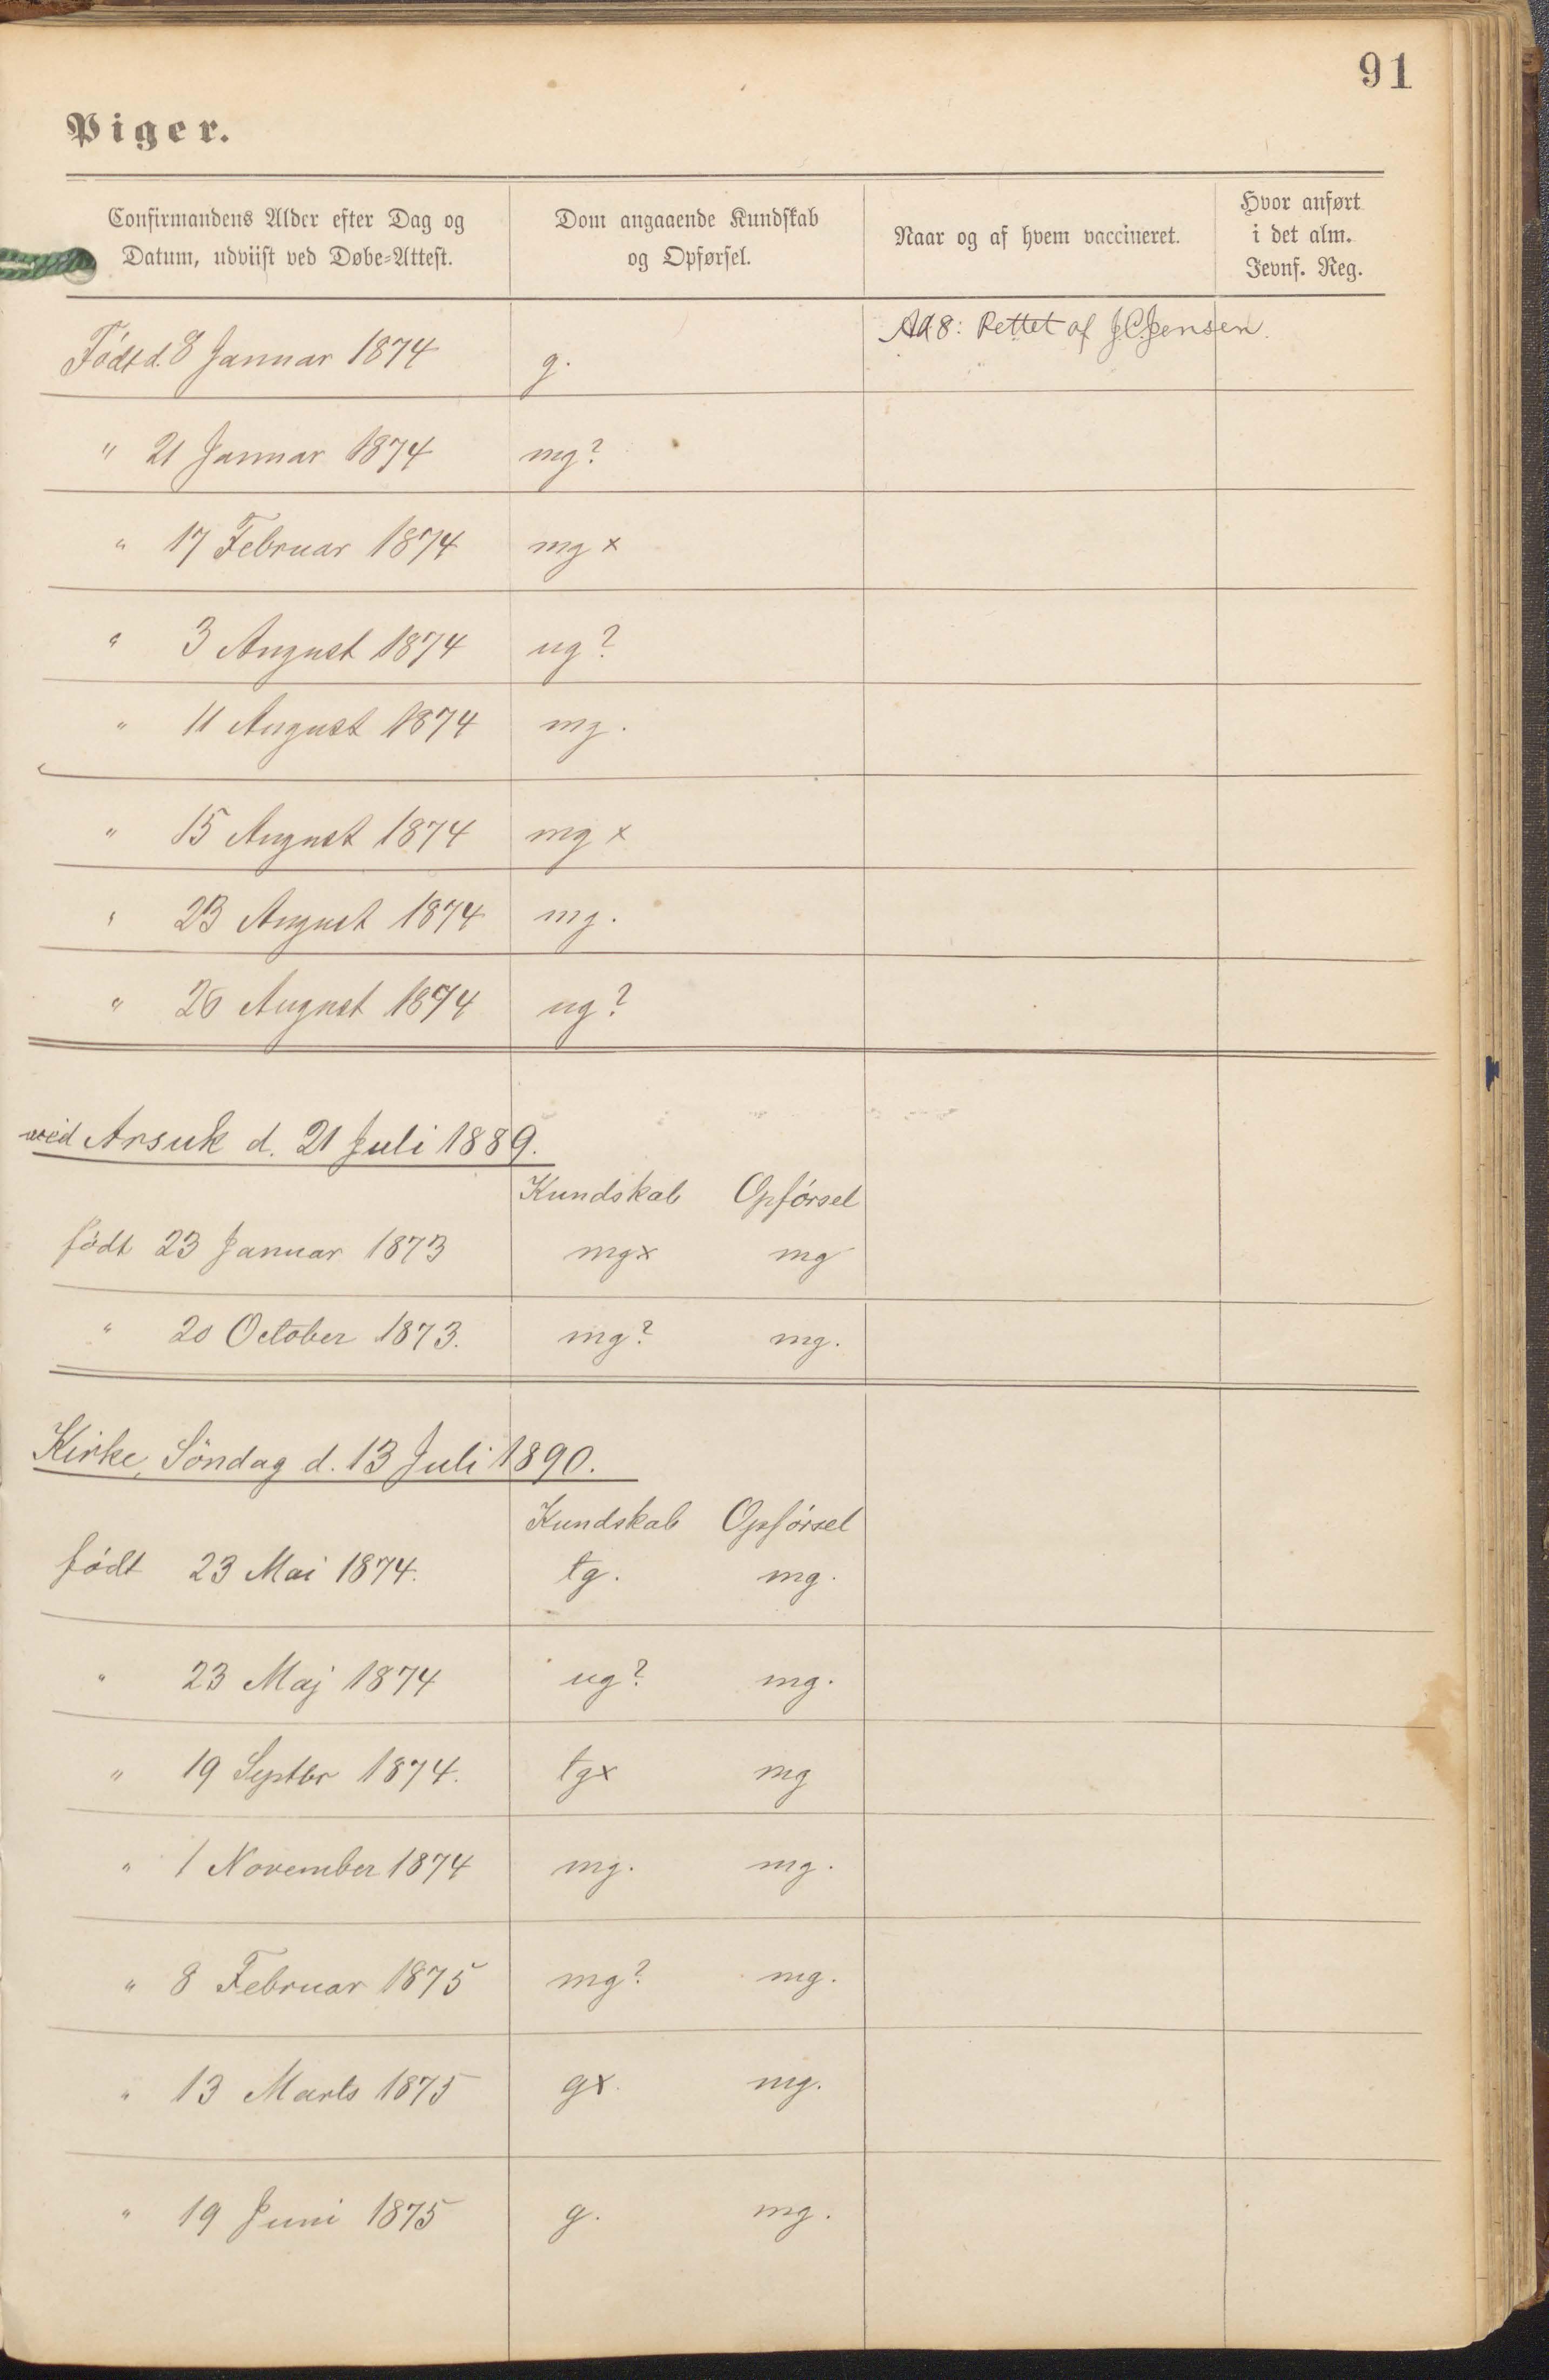 91
Piger.
Confirmandens Alder efter Dag og
Datum, udviist ved Døbe=Attest.
Dom angaaende Kundskab
og Opførsel.
Naar og af hvem vaccineret.
Hvor anført
i det alm.
Jevnf. Reg.
Ad 8: Rettet af J.C.Jensen.
Födt d. 8 Januar 1874 g.
" 21 Januar 1874 mg?
" 17 Februar 1874 mg x
" 3 August 1874 ug?
" 11 August 1874 mg.
" 15 August 1874 mg x
" 23 August 1874 mg.
" 26 August 1874 ug?
ved Arsuk d. 21 Juli 1889.
Kundskab Opförsel
födt 23 Januar 1873 mgx mg
" 20 October 1873. mg? mg.
Kirke, Söndag d. 13 Juli 1890.
Kundskab Opförsel
födt 23 Mai 1874. tg. mg.
" 23 Maj 1874 ug? mg.
" 19 Septbr 1874. tgx mg
" 1 November 1874 mg. mg.
" 8 Februar 1875 mg? mg.
" 13 Marts 1875 gx. mg.
" 19 Juni 1875 g. mg.